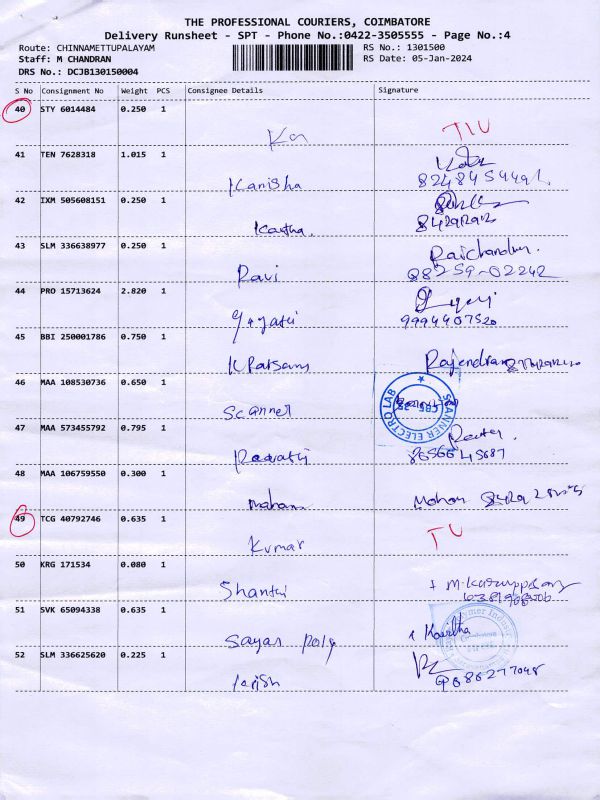 THE PROFESSIONAL COURIERS, COIMBATORE
Delivery Runsheet - SPT - Phone No.:0422-3505555 - Page No.:4
Route: CHINNAMETTUPALAYAM RS No.: 1301500
Staff: M CHANDRAN RS Date: 05-Jan-2024
DRS No.: DCJB130150004
S No Consignment No Weight PCS Consignee Details Signature
40 STY 6014484 0.250 1
41 TEN 7628318 1.015 1
Kanisha
42 IXM 505608151 0.250 1
Kartha.
43 SLM 336638977 0.250 1
Ravi Raichandran.
88259-02242
44 PRO 15713624 2.820 1
Gayatri
9994407520
45 BBI 250001786 0.750 1
Rajendran
46 MAA 108530736 0.650 1
Scanner
SCANNER ELECTRO LAB
47 MAA 573455792 0.795 1
Revathi
8656645687
48 MAA 106759550 0.300 1
Mohan
49 TCG 40792746 0.635 1
Kumar
50 KRG 171534 0.080 1
Shanthi
51 SVK 65094338 0.635 1
Sayar Poly Kavitha
52 SLM 336625620 0.225 1